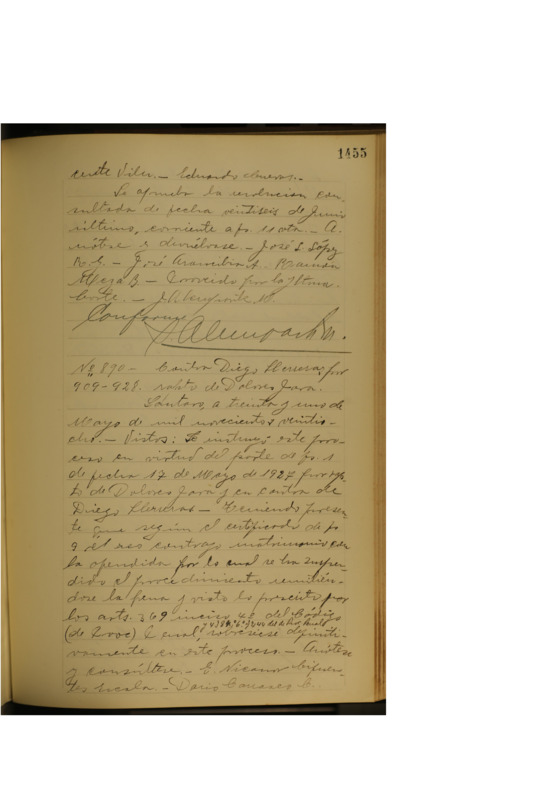 1455
Vilu. — Eduardo
Se aprueba la resolucion con-
sultada de fecha veintiseis de Junio
último, corriente a fs. 10 vta. — A-
nótese i devuélvase. — José L. López
R. G. — José Aramburu A. Ramón
Meza B — Proveido por la Iltma.
Corte. —
Conforme
No 890 — Contra Diego Herreras, por
909-928. rapto de Dolores Jara.
Lautaro, a treinta y uno de
Mayo de mil novecientos veintio-
cho. — Vistos: Se instruyó este pro-
ceso en virtud del parte de fs. 1
de fecha 17 de Mayo de 1927 por rap-
to de Dolores Jara y en contra de
Diego Herreras — Teniendo presen-
te que según el certificado de fs
9 el reo contrajo matrimonio con
la ofendida por lo cual se ha suspen-
dido el procedimiento remitién-
dose la pena y visto lo prescrito por
los arts. 369 inciso 4º del Código
Penal sobresease definiti-
vamente en este proceso. — Anótese
y consúltese. — E. Nicanor Cifuen-
tes — Dario